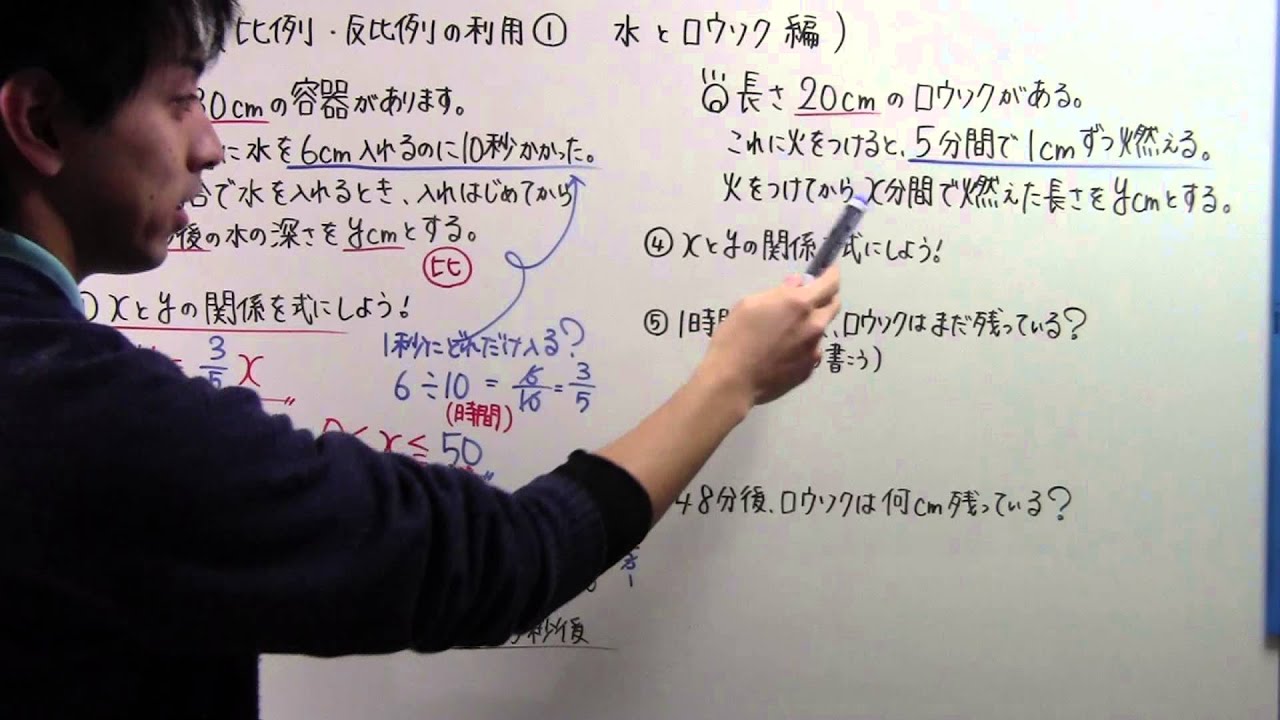 比例・反比例の利用① 水とロウソク編)
30cmの容器があります。
に水を6cm入れるのに10秒かかった。
で水を入れるとき、入れはじめてから
後の水の深さをycmとする。
比
xとyの関係を式にしよう!
3/5 x
1秒にどれだけ入る?
6÷10 = 6/10 = 3/5
(時間)
x ≦ 50
秒後
長さ20cmのロウソクがある。
これに火をつけると、5分間で1cmずつ燃える。
火をつけてからx分間で燃えた長さをycmとする。
④ xとyの関係 式にしよう!
⑤ 1時間 、ロウソクはまだ残っている?
書こう)
48分後、ロウソクは何cm残っている?